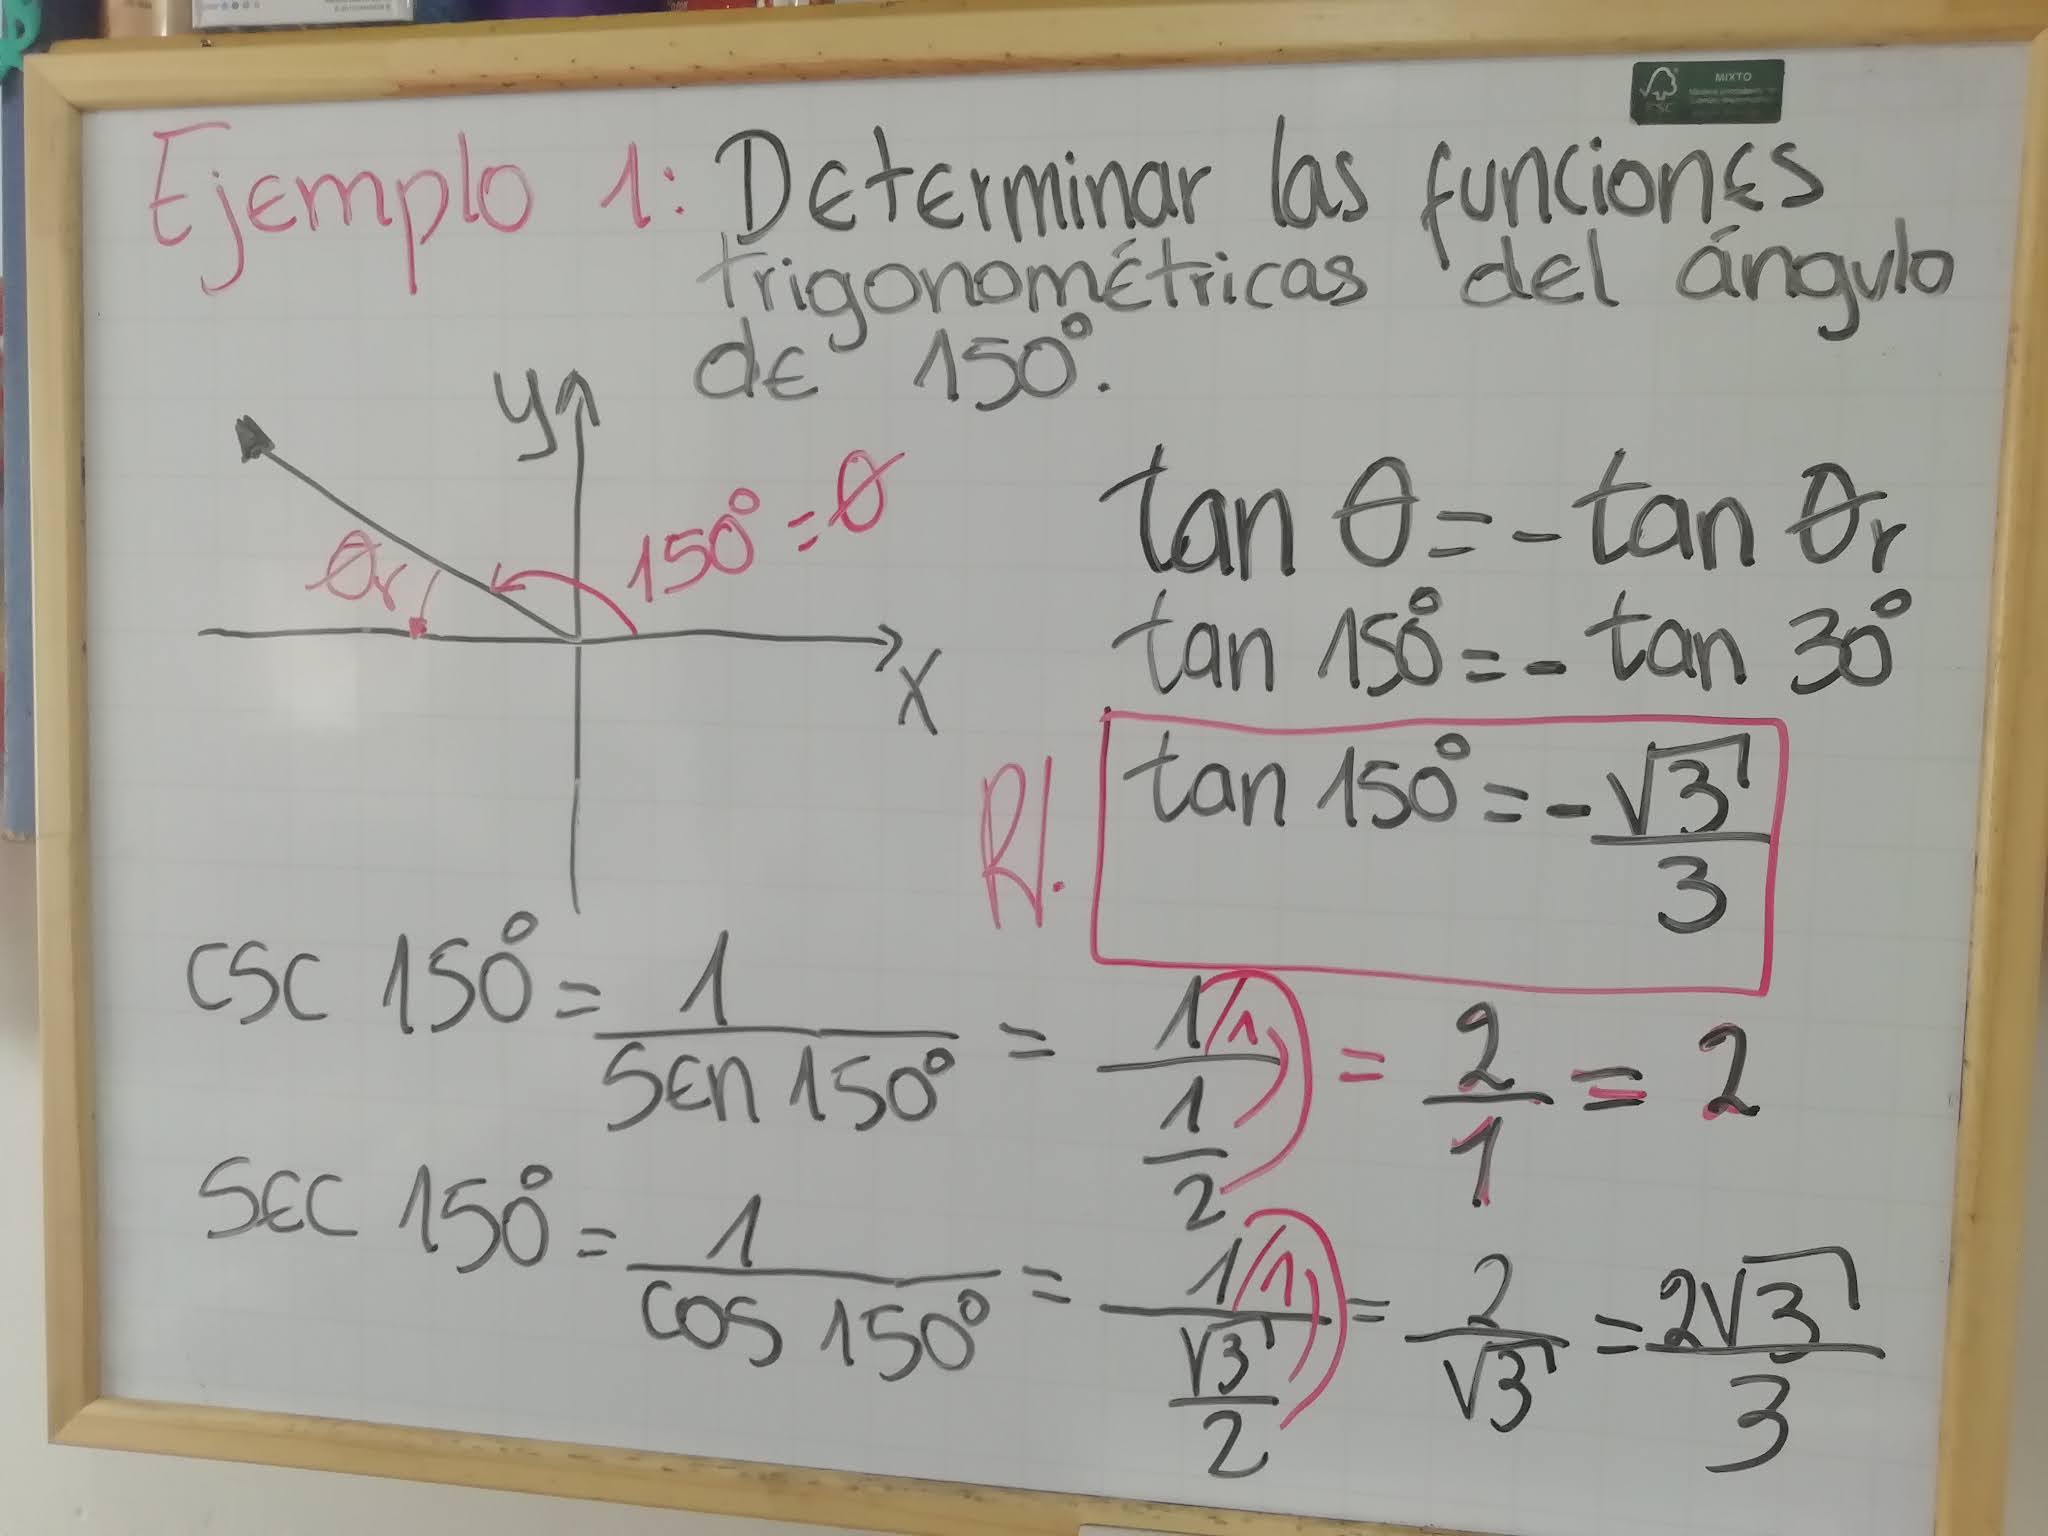 MIXTO
FSC
Ejemplo 1: Determinar las funciones
trigonométricas del ángulo
de 150°.
y
150° = θ
θr
x
tan θ = - tan θr
tan 150° = - tan 30°
R/. tan 150° = - √3/3
csc 150° = 1/sen 150° = 1/1/(1/2) = 2/1 = 2
sec 150° = 1/cos 150° = 1/1/(√3/2) = 2/√3 = 2√3/3